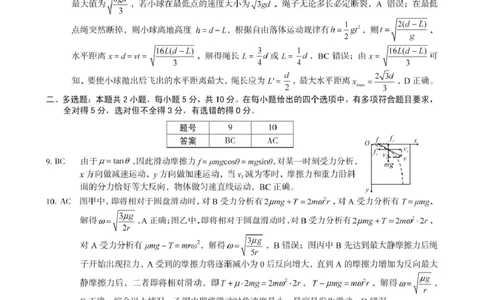 最大值为 3 ,若小球在最低点的速度大小为√3gd,绳子无论多长必定断裂,A 错误;在最低
点绳突然断掉,则小球离地高度 h=d−L,根据自由落体运动规律有h=½gt²,则t=√(2(d−L)/g),
水平距离 x=d=vt=√(16L(d−L)/3),解得绳长 L=3/4 d或 L=1/4 d,BC 错误;由 x=√(16L(d−L)/3)可
知,要使小球抛出后飞出的水平距离最大,绳长应为 L'=d/2,最大水平距离xmax=2√3d/3,D 正确。
二、多选题:本题共2小题,每小题5分,共10分。在每小题给出的四个选项中,有多项符合题目要求,
全对得5分,选对但不全得3分,有选错的得0分.
题号 9 10
答案 BC AC
9. BC 由于μ=tanθ,因此滑动摩擦力f=μmgcosθ=mgsinθ,对某一时刻受力分析,
x方向做减速运动,y方向做加速运动,当vx减为零时,摩擦力和重力沿斜
面的分力恰好等大反向,物体做匀速直线运动,BC正确。
O f fx x
fy vx
vy v
mg
y
10. AC 图甲中,即将相对于圆盘滑动时,对B受力分析有2μmg+T=2mω²r,对A受力分析有T=μmg,
解得ω=√(3μg/2r),A正确;图乙中,即将相对于圆盘滑动时,对B受力分析有2μmg+T=2mω²·2r,
对A受力分析有μmg−T=mrω²,解得ω=√(3μg/5r),B错误;图丙中B先达到最大静摩擦力后绳
子开始出现拉力,A受到的摩擦力将逐渐减小为0后反向增大,直到A的摩擦力增加为反向最大
静摩擦力后,二者即将相对滑动,即T+μ·2mg=2mω²·2r,T−μmg=mω²r,解得ω=√(μg/r),